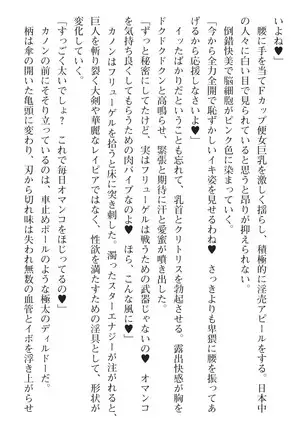 いよね♥」
　腰に手を当てFカップ便女巨乳を激しく揺らし、積極的に淫売アピールをする。日本中
の人々に白い目で見られていると思うと昂りが抑えられない。
　倒錯快美で脳細胞がピンク色に染まっていく。
「今から全力全開で恥ずかしいイキ姿を見せるわね♥　さっきよりも卑猥に腰を振ってあ
げるから応援しなさいよ♥」
　イッたばかりだということも忘れて、乳首とクリトリスを勃起させる。露出快感が胸を
ドクドクドクンと高鳴らせ、緊張と期待に汗と愛蜜が噴き出した。
「ずっと秘密にしてたけど、実はフリューゲルは戦うための武器じゃないの♥　オマンコ
を気持ち良くしてもらうための肉バイブなのよ♥　ほら、こんな風に♥」
　カノンはフリューゲルを拾うと床に突き刺した。濁ったスターエナジーが注がれると、
巨人を斬り裂く大剣や華麗なレイピアではなく、性欲を満たすための淫具として、形状が
変化していく。
「すっごく太いでしょ？　これで毎日オマンコをほじってるの♥」
　カノンの前にそそり立っているのは、車止めポールのような極太のディルドーだ。
　柄は傘の開いた亀頭に変わり、刃から切れ味は失われ無数の血管とイボを浮き上がらせ